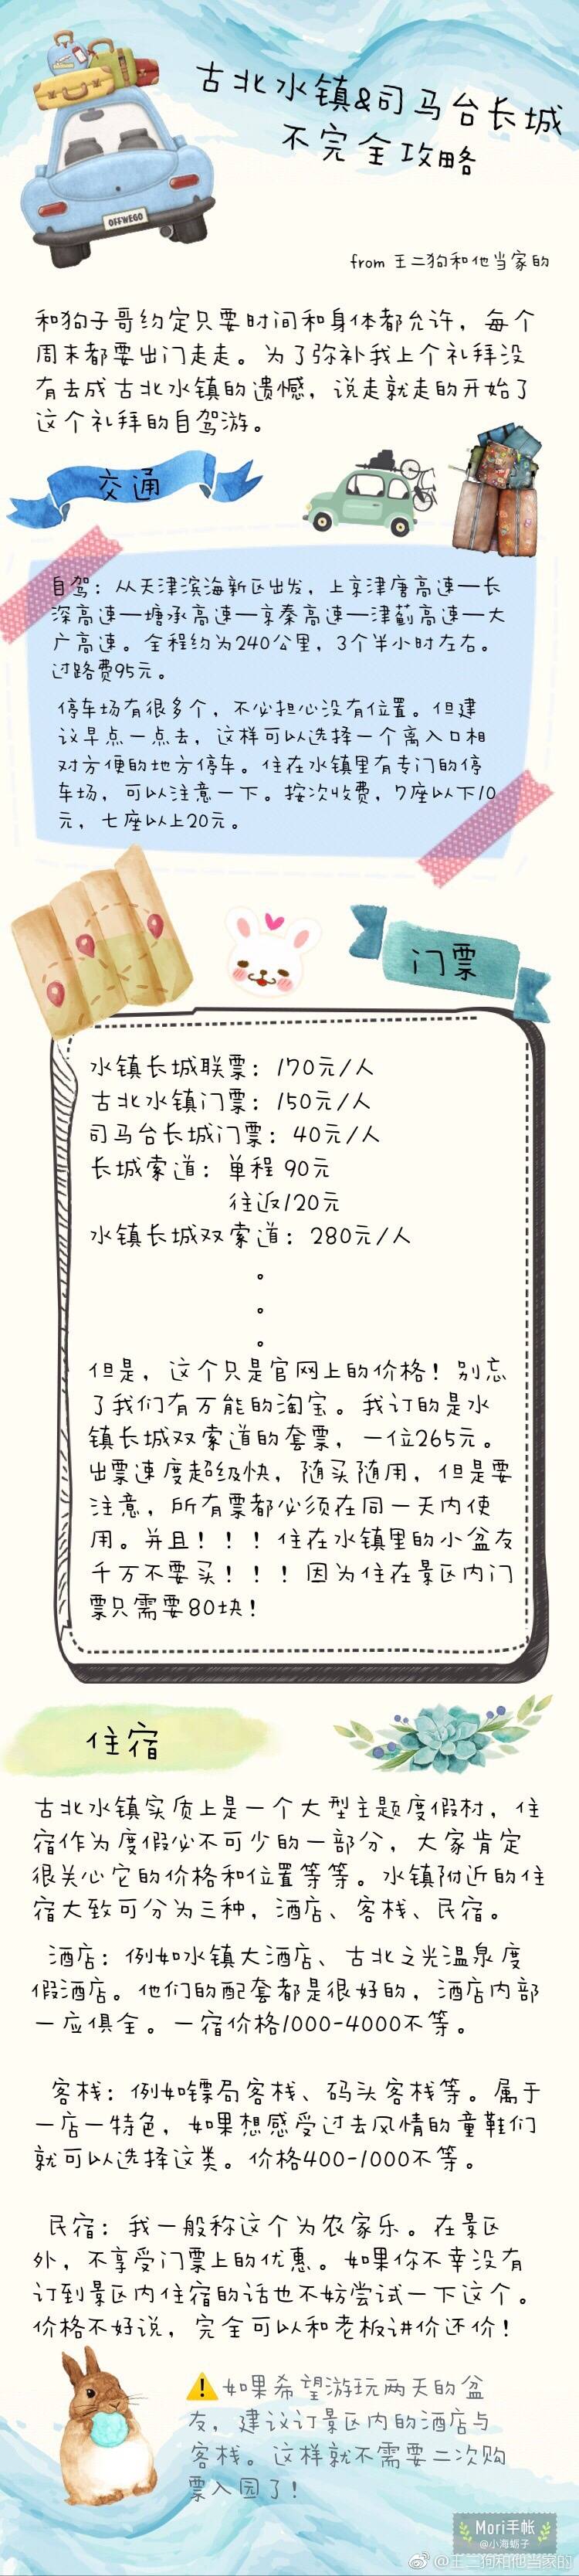 古北水镇&司马台长城
不完全攻略
OFFWEGO
from 王二狗和他当家的
和狗子哥约定只要时间和身体都允许，每个
周末都要出门走走。为了弥补我上个礼拜没
有去成古北水镇的遗憾，说走就走的开始了
这个礼拜的自驾游。
交通
自驾：从天津滨海新区出发，上京津唐高速—长
深高速—塘承高速—京秦高速—津蓟高速—大
广高速。全程约为240公里，3个半小时左右。
过路费95元。
停车场有很多个，不必担心没有位置。但建
议早点一点去，这样可以选择一个离入口相
对方便的地方停车。住在水镇里有专门的停
车场，可以注意一下。按次收费，7座以下10
元，七座以上20元。
门票
水镇长城联票：170元/人
古北水镇门票：150元/人
司马台长城门票：40元/人
长城索道：单程 90元
往返120元
水镇长城双索道：280元/人
。
。
。
但是，这个只是官网上的价格！别忘
了我们有万能的淘宝。我订的是水
镇长城双索道的套票，一位265元。
出票速度超级快，随买随用，但是要
注意，所有票都必须在同一天内使
用。并且！！！住在水镇里的小盆友
千万不要买！！！因为住在景区内门
票只需要80块！
住宿
古北水镇实质上是一个大型主题度假村，住
宿作为度假必不可少的一部分，大家肯定
很关心它的价格和位置等等。水镇附近的住
宿大致可分为三种，酒店、客栈、民宿。
酒店：例如水镇大酒店、古北之光温泉度
假酒店。他们的配套都是很好的，酒店内部
一应俱全。一宿价格1000-4000不等。
客栈：例如镖局客栈、码头客栈等。属于
一店一特色，如果想感受过去风情的童鞋们
就可以选择这类。价格400-1000不等。
民宿：我一般称这个为农家乐。在景区
外，不享受门票上的优惠。如果你不幸没有
订到景区内住宿的话也不妨尝试一下这个。
价格不好说，完全可以和老板讲价还价！
⚠️如果希望游玩两天的盆
友，建议订景区内的酒店与
客栈。这样就不需要二次购
票入园了！
Mori手帐
@小海蛎子
@王二狗和他当家的